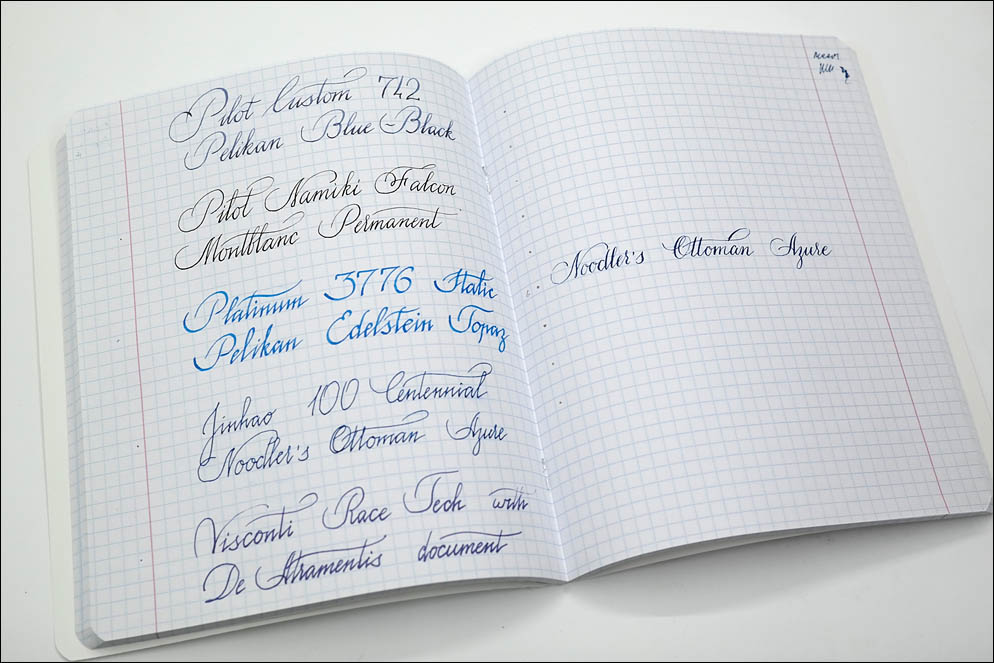 Pilot Custom 742
Pelikan Blue-Black
Pilot Namiki Falcon
Montblanc Permanent
Platinum 3776 Italic
Pelikan Edelstein Topaz
Jinhao 100 Centennial
Noodler's Ottoman Azure
Visconti Race Tech with
De Atramentis document
Noodler's Ottoman Azure